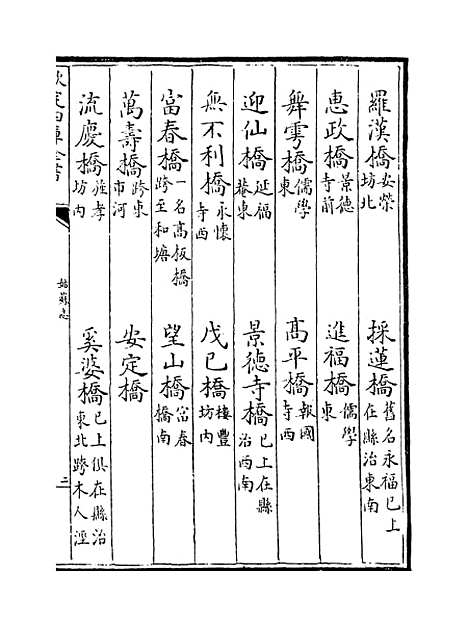 羅漢橋安榮坊北　採蓮橋舊名永福已上在縣治東南
惠政橋景德寺前　進福橋儒學東
舞雩橋儒學東　髙平橋報國寺西
迎仙橋延福菴東　景德寺橋已上在縣治西南
無不利橋永懷寺西　戊己橋樓豐坊内
富春橋一名高板橋跨至和塘　望山橋富春橋南
萬壽橋跨東市河　安定橋
流慶橋旌孝坊内　奚婆橋已上俱在縣治東北跨木人涇
欽定四庫全書
姑蘇志
三